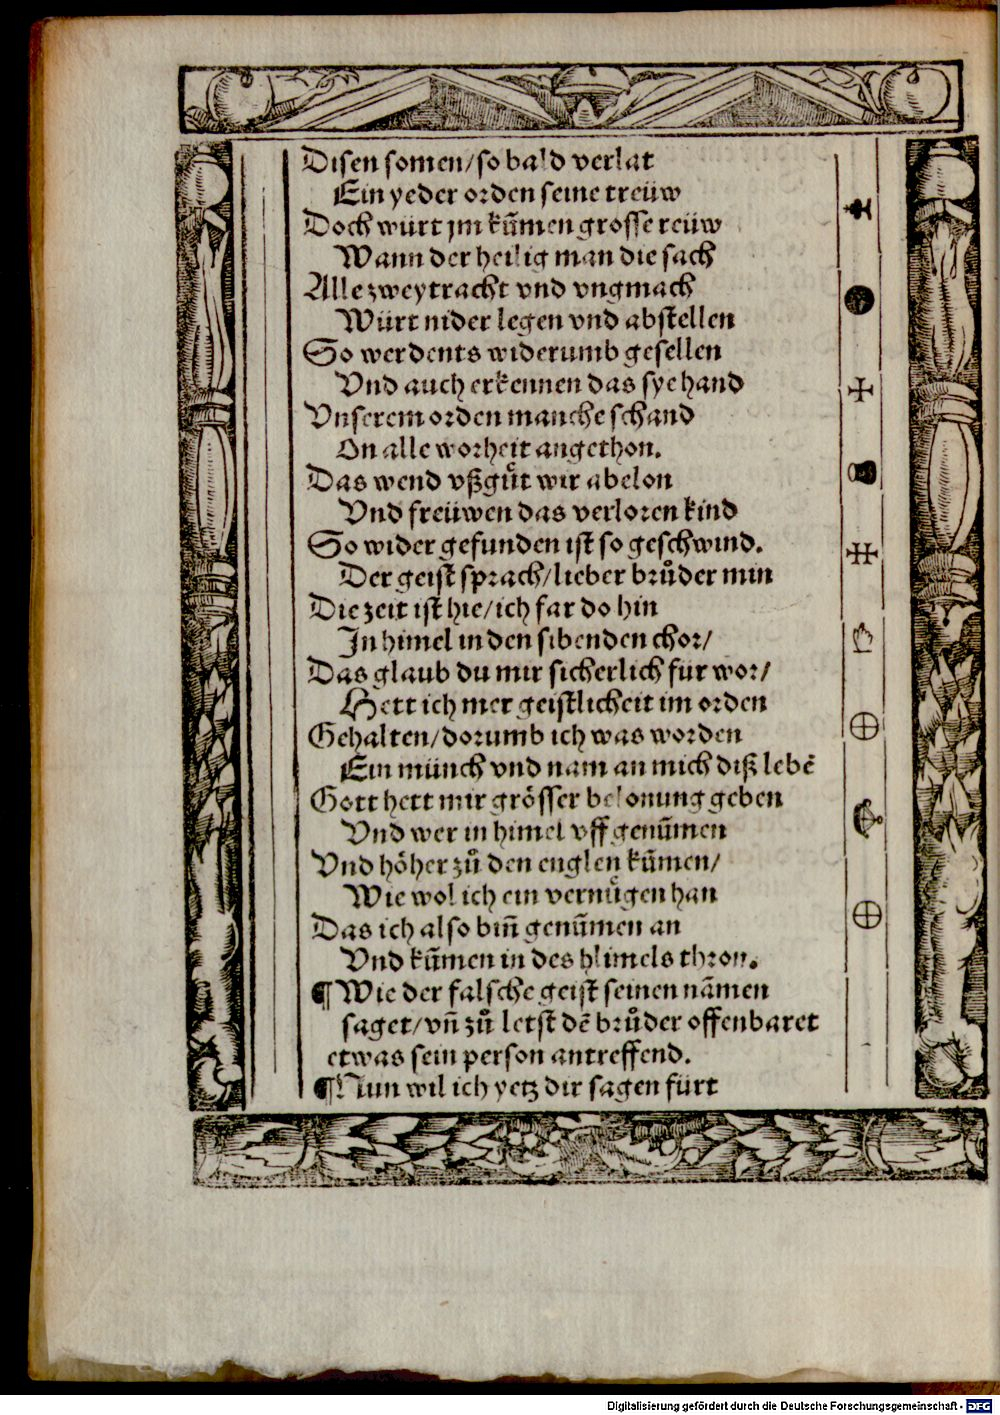 Disen somen/so bald verlat
Ein yeder orden seine treüw
Doch würt jm kūmen grosse reüw
Wann der heilig man die sach
Alle zweytracht vnd vngmach
Würt nider legen vnd abstellen
So werdents widerumb gesellen
Vnd auch erkennen das sye hand
Vnserem orden manche schand
On alle worheit angethon.
Das wend vßguͤt wir abelon
Vnd freüwen das verloren kind
So wider gefunden ist so geschwind.
Der geist sprach/lieber bruͦder min
Die zeit ist hie/ich far do hin
In himel in den sibenden chor/
Das glaub du mir sicherlich für wor/
Hett ich mer geistlicheit im orden
Gehalten/dorumb ich was worden
Ein münch vnd nam an mich diß lebē
Gott hett mir grösser belonung geben
Vnd wer in himel vff genūmen
Vnd höher zuͦ den englen kūmen/
Wie wol ich ein vernuͤgen han
Das ich also bin̄ genūmen an
Vnd kūmen in des hlimels thron.
¶ Wie der falsche geist seinen nāmen
saget/vn̄ zuͦ letst dē bruͦder offenbaret
etwas sein person antreffend.
¶ Nun wil ich yetz dir sagen fürt
Digitalisierung gefördert durch die Deutsche Forschungsgemeinschaft - DFG